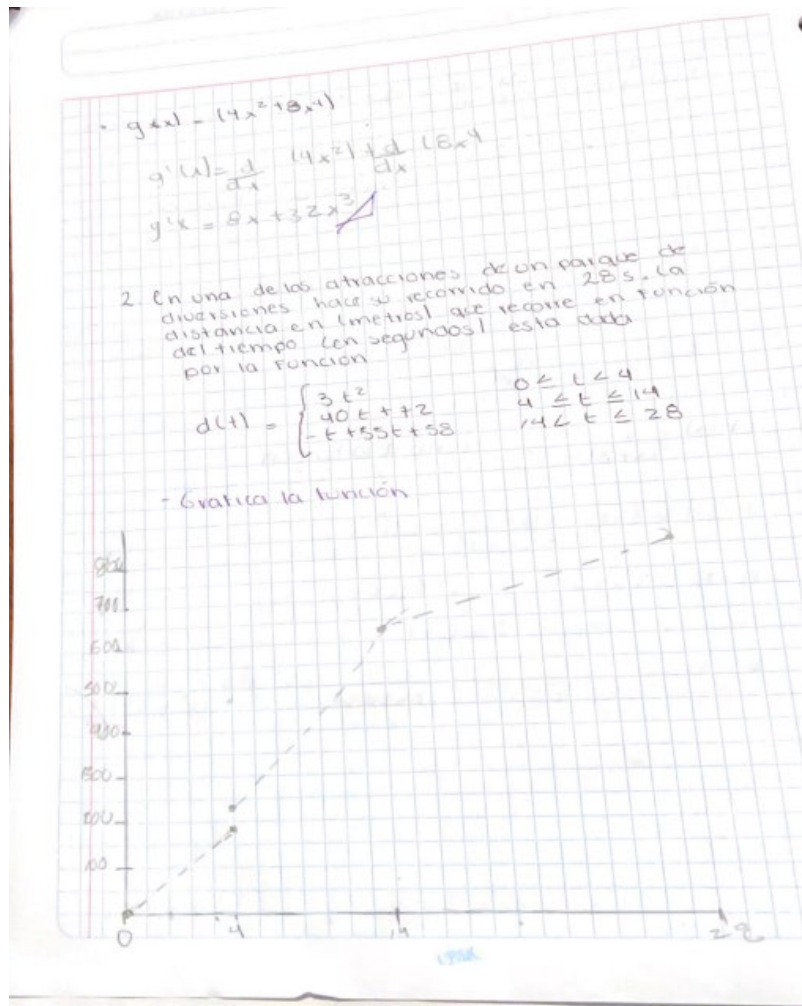 · g(x) = (4x² + 8x⁴)
g'(x) = d/dx (4x²) + d/dx (8x⁴
g'x = 8x + 32x³
2. En una de las atracciones de un parque de
diversiones hace su recorrido en 28 s. La
distancia en (metros) que recorre en función
del tiempo (en segundos) esta dada
por la función
d(t) = { 3t² 0 ≤ t < 4
40t + 72 4 ≤ t ≤ 14
-t + 55t + 58 14 < t ≤ 28
- Grafica la función
800
700
600
500
400
300
200
100
0 4 14 28